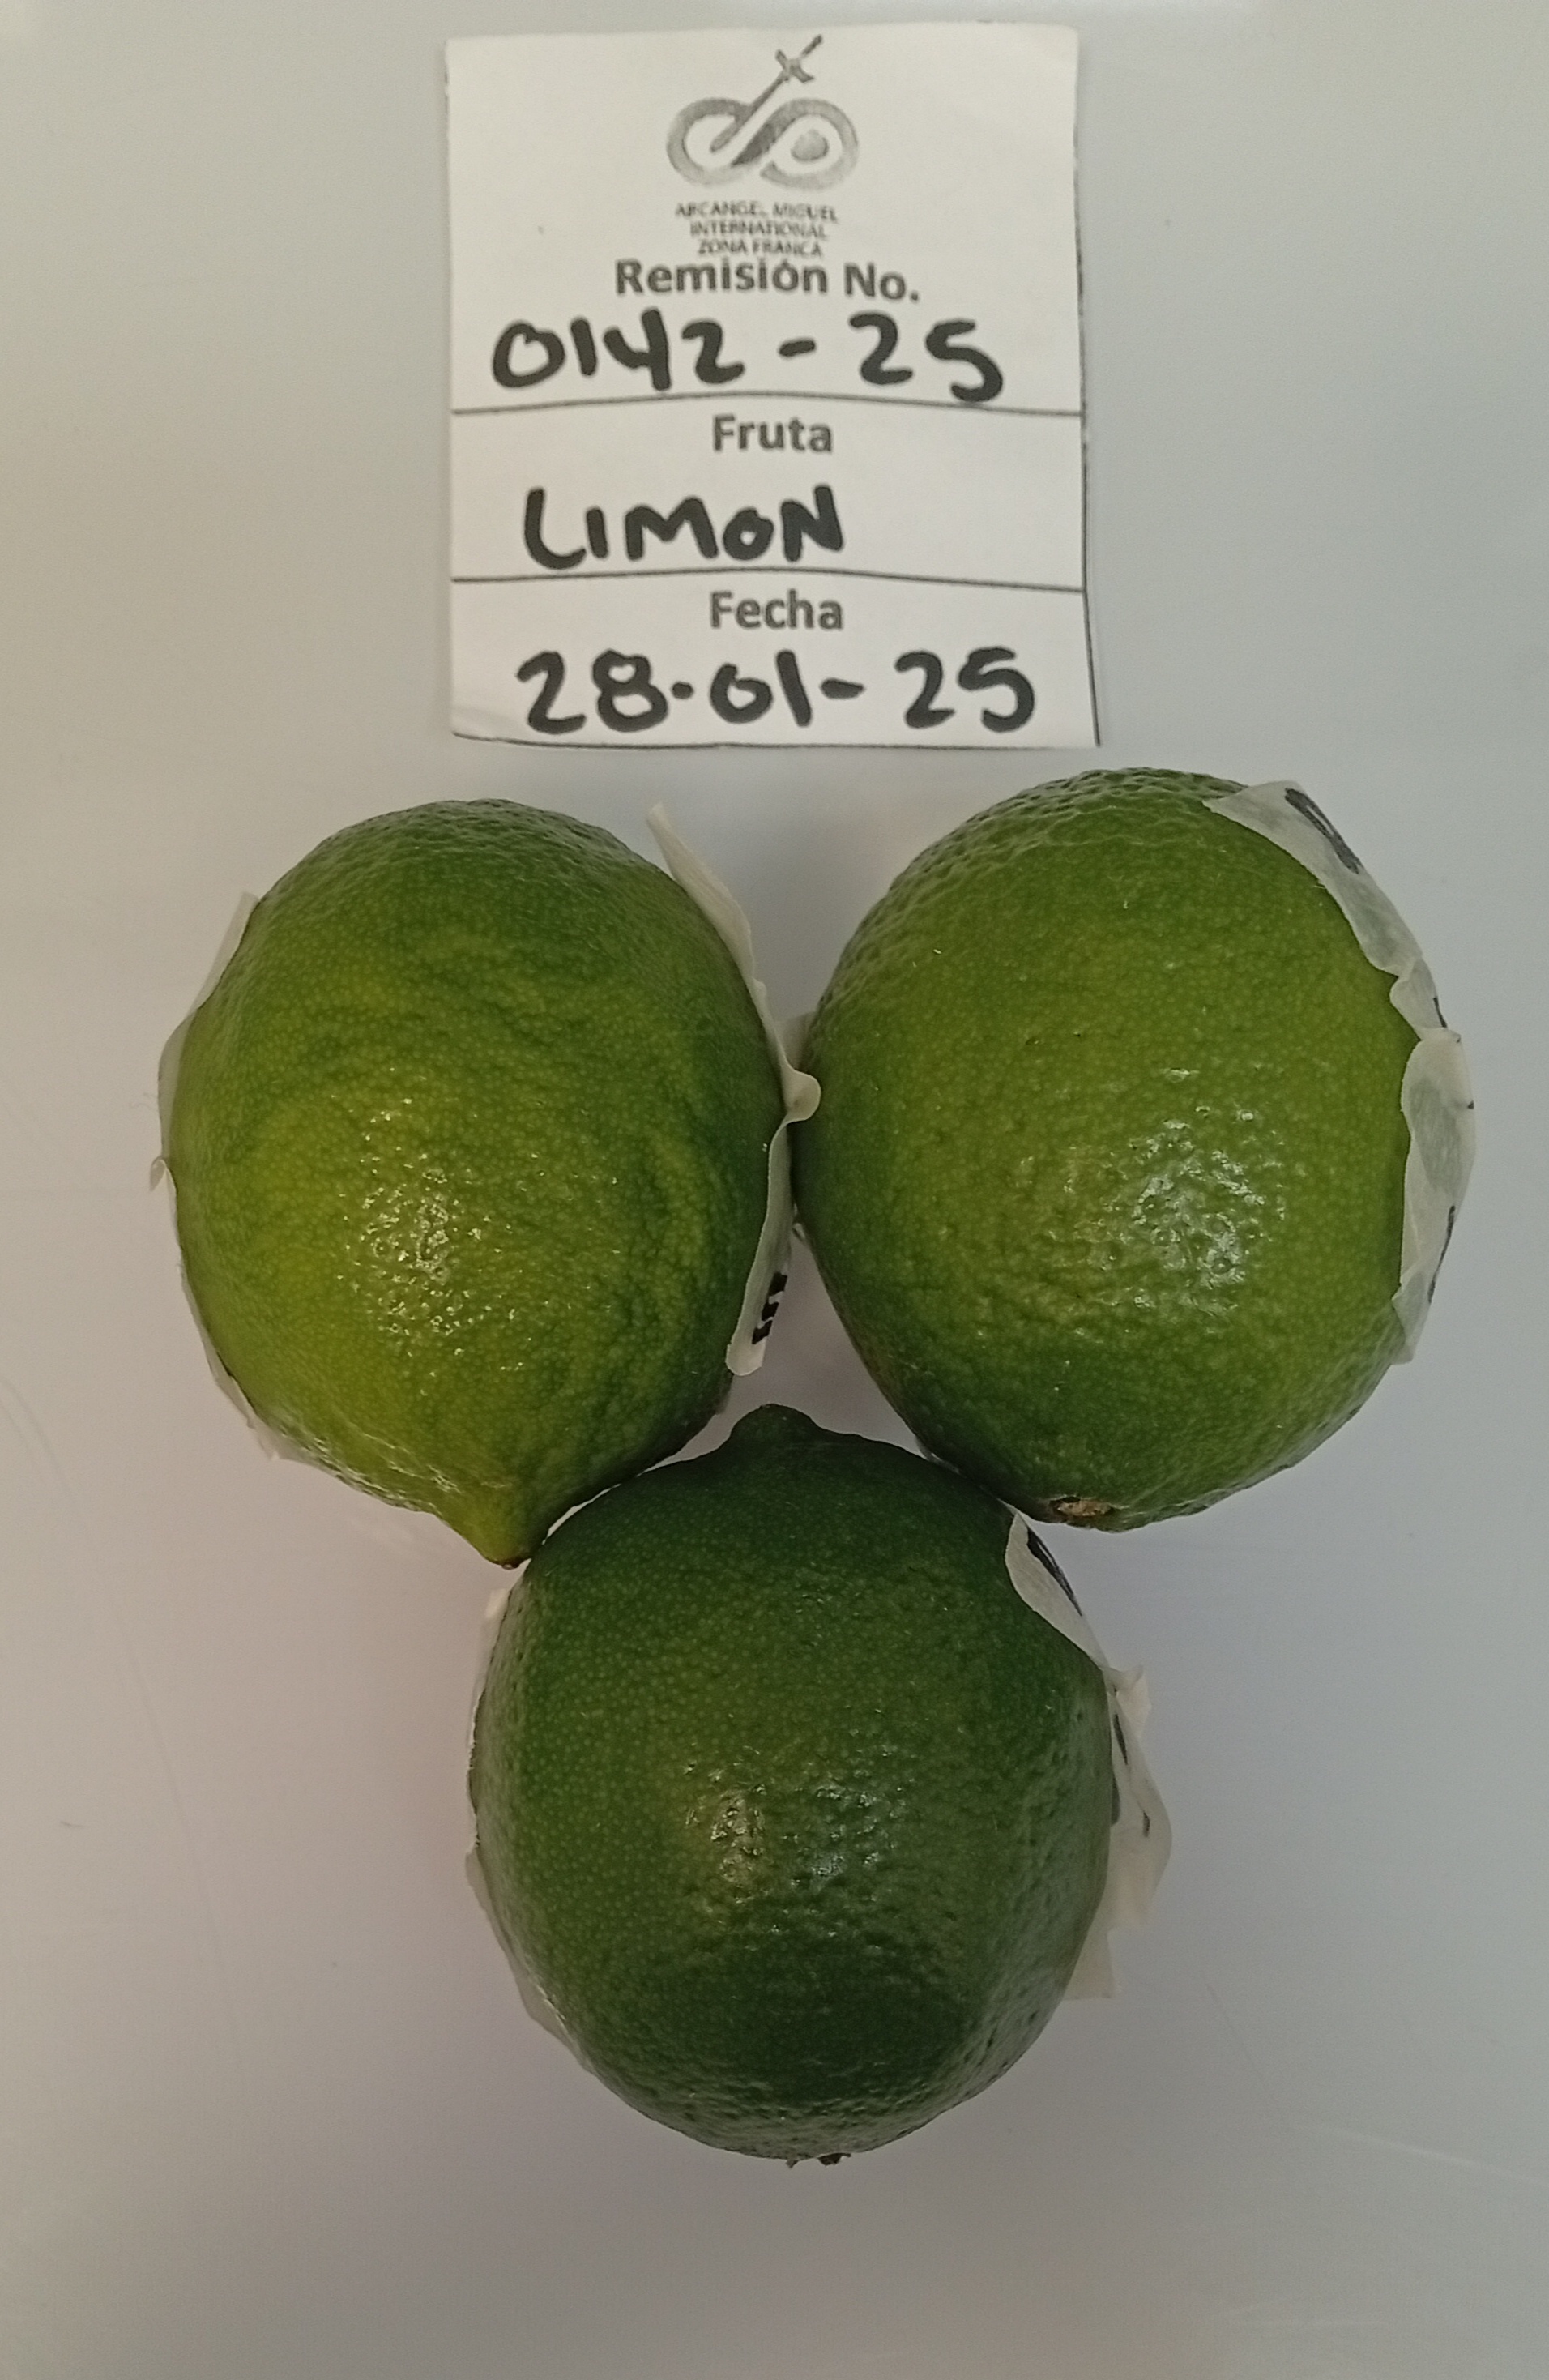 ARCANGEL MIGUEL
INTERNATIONAL
ZONA FRANCA
Remisión No.
0142-25
Fruta
LIMON
Fecha
28-01-25